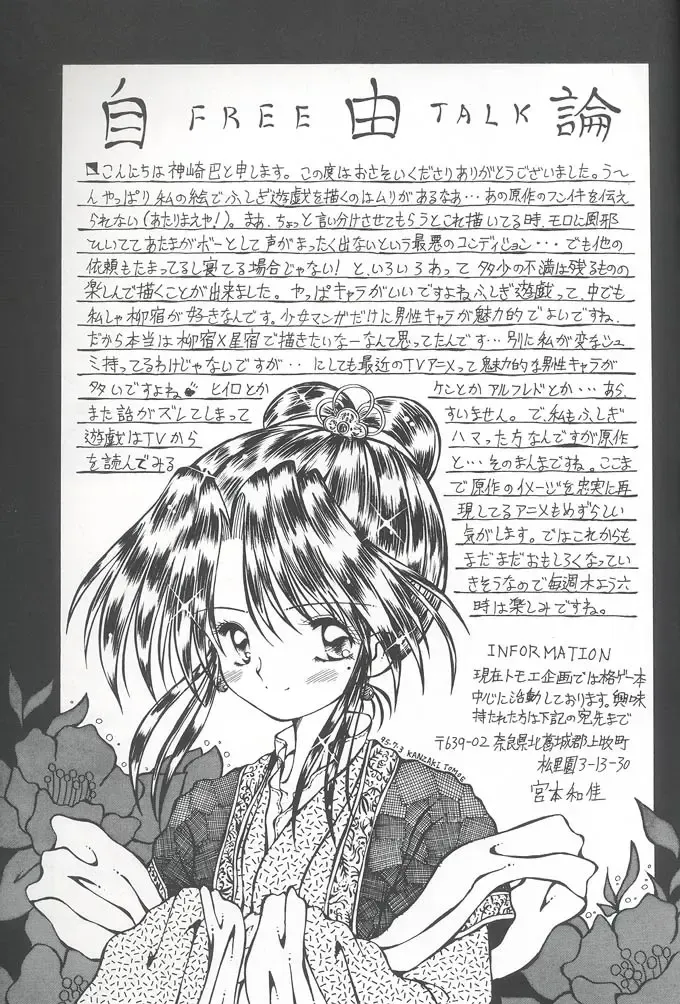 自 FREE 由 TALK 論
こんにちは神崎巴と申します。この度はおさそいくださりありがとうございました。う〜
んやっぱり私の絵でふしぎ遊戯を描くのはムリがあるなあ…あの原作のフン件を伝え
られない(あたりまえや!)。まあ、ちょっと言い分けさせてもらうとこれ描いてる時、モロに風邪
ひいててあたまがボーとして声がまったく出ないという最悪のコンディション…でも他の
依頼もたまってるし寝てる場合じゃない!と、いろいろあって多少の不満は残るものの
楽しんで描くことが出来ました。やっぱキャラがいいですよねふしぎ遊戯って、中でも
私しゃ柳宿が好きなんです。少女マンガだけに男性キャラが魅力的でよいですね、
だから本当は柳宿×星宿で描きたいなーなんて思ってたんです…別に私が変なシュ
ミ持ってるわけじゃないですが‥にしても最近のTVアニメって魅力的な男性キャラが
多いですよね ヒイロとか ケンとかアルフレドとか…あら、
また話がズレてしまって すいません。で、私もふしぎ
遊戯はTVから ハマった方なんですが原作
を読んでみる と…そのまんまですね。ここま
で原作のイメージを忠実に再
現してるアニメもめずらしい
気がします。ではこれからも
まだまだおもしろくなってい
きそうなので毎週木よう六
時は楽しみですね。
INFORMATION
現在トモエ企画では格ゲー本
中心に活動しております。興味
持たれた方は下記の宛先まで
〒639-02 奈良県北葛城郡上牧町
松里園3-13-30
宮本和佳
95.7.3 KANZAKI TOMOE